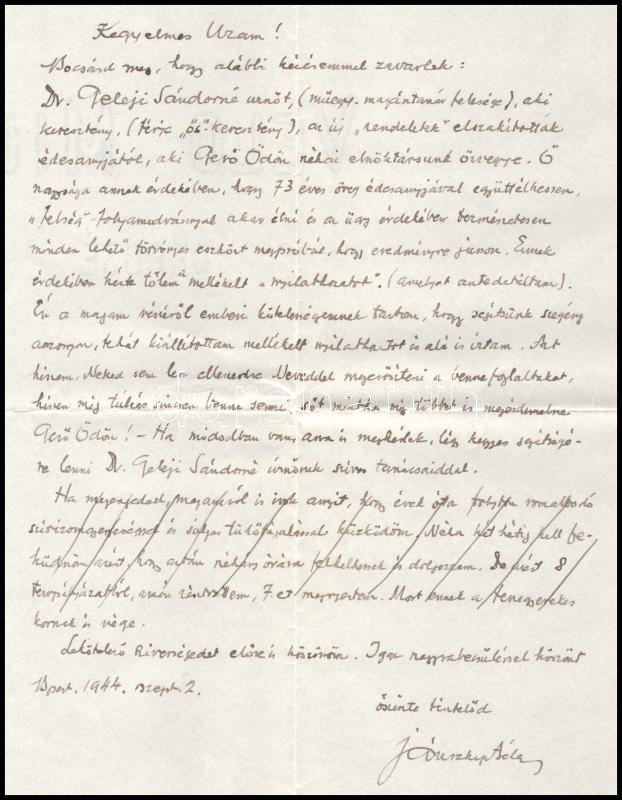 Kegyelmes Uram!
Bocsásd meg, hogy alábbi kérésemmel zavarlak:
Dr. Geleji Sándorné úrnőt, (műegy. magántanár felesége), aki
keresztény, (férje „ős"-keresztény), az új „rendeletek" elszakították
édesanyjától, aki Gerő Ödön néhai elnöktársunk özvegye. Ő
nagysága annak érdekében, hogy 73 éves öreg édesanyjával együttélhessen,
„felség"-folyamodványnyal akar élni és az ügy érdekében természetesen
minden lehető törvényes eszközt megpróbál, hogy eredményre jusson. Ennek
érdekében kérte tőlem a mellékelt „nyilatkozatot". (amelyet antedatáltam).
Én a magam részéről emberi kötelességemnek tartom, hogy segítsünk szegény
asszonyon, tehát kiállítottam mellékelt nyilatkozatot és alá is írtam. Azt
hiszem, Neked sem lesz ellenedre Neveddel megerősíteni a bennefoglaltakat,
hiszen még túlzás sincsen benne semmi, sőt mintha még többet is megérdemelne
Gerő Ödön! – Ha módodban van, arra is megkérlek, légy kegyes segítségé-
re lenni Dr. Geleji Sándorné úrnőnek szíves tanácsaiddal.
Ha megengeded, magamról is írok annyit, hogy évek óta folyton romladozó
szívizomgyengeséggel és súlyos tüdőtágulással küzködöm. Néha két hétig kell fe-
küdnöm azért, hogy aztán néhány órára felkelhessek és dolgozzam. De azért 8
tervpályázatból, amin résztvettem, 7-et megnyertem. Most ennek a
kornak is vége.
Lekötelező szívességedet előre is köszönöm. Igaz nagyrabecsüléssel köszönt
Bpest. 1944. szept. 2.
őszinte tisztelőd